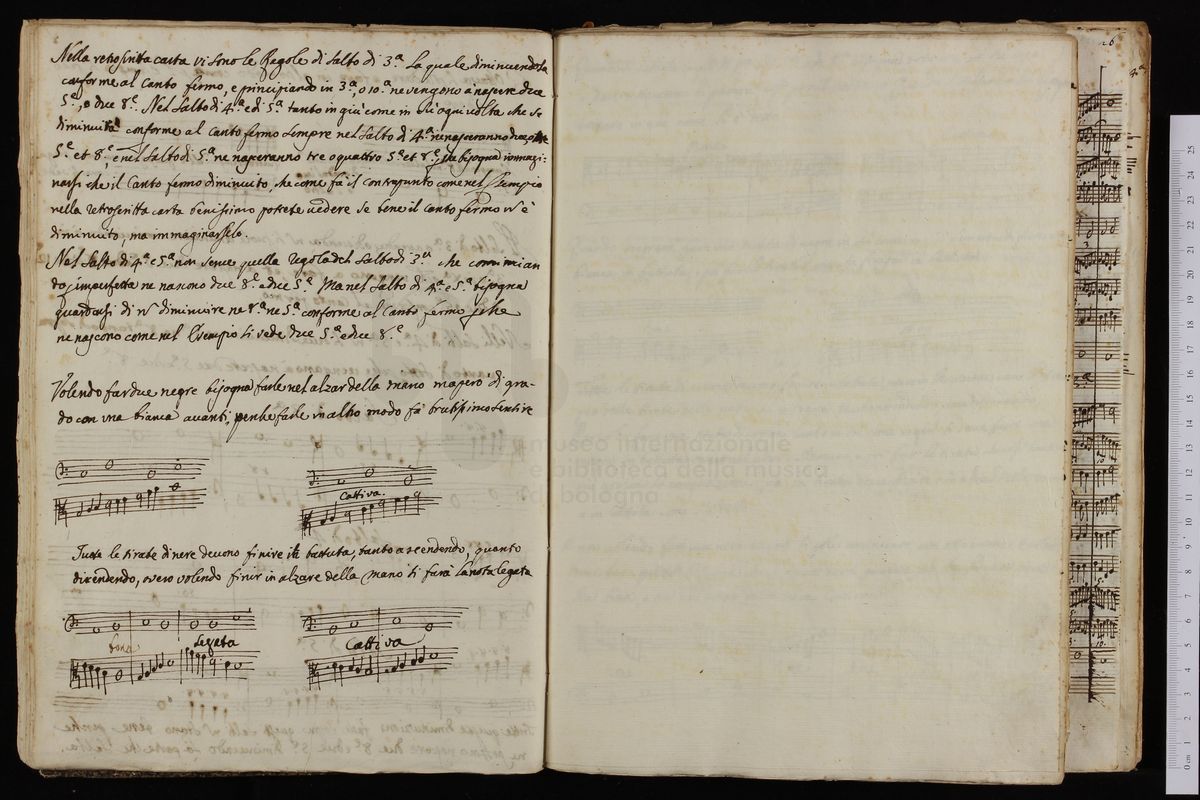 Nella retroscritta carta vi sono le Regole di salto di 3.ª La quale diminuendola
conforme al Canto fermo, e principiando in 3.ª, o 10.ª ne vengono a nascere due
5.e, o due 8.e Nel salto di 4.ª e di 5.ª tanto in giù come in sù ogni volta che si
diminuirà conforme al Canto fermo sempre nel salto di 4.ª ne nasceranno
5.e et 8.e, e nel salto di 5.ª ne nasceranno tre o quattro 5.e et 8.e, bisogna immagi:
narsi che il Canto fermo diminuito, che come fà il contrapunto come nel Esempio
nella retroscritta carta benissimo potrete vedere se bene il Canto fermo nō è
diminuito, ma immaginarselo.
Nel salto di 4.ª e 5.ª non serve quella regola del salto di 3.ª che comincian
do imperfetta ne nascono due 8.e e due 5.e Ma nel salto di 4.ª e 5.ª bisogna
guardarsi di nō diminuire ne 8.ª ne 5.ª conforme al Canto fermo che
ne nascono come nel Esempio si vede due 5.e e due 8.e
Volendo far due negre bisogna farle nel alzar della mano ma però di gra-
do con una bianca avanti, perche farle in altro modo fà bruttissimo sentire
Cattiva.
Tutte le tirate di nere devono finire in battuta, tanto ascendendo, quanto
dicendendo, overo volendo finir in alzare della mano si farà la nota legata
bona
Legata
Cattiva
museo internazionale
e biblioteca della musica
di bologna
26